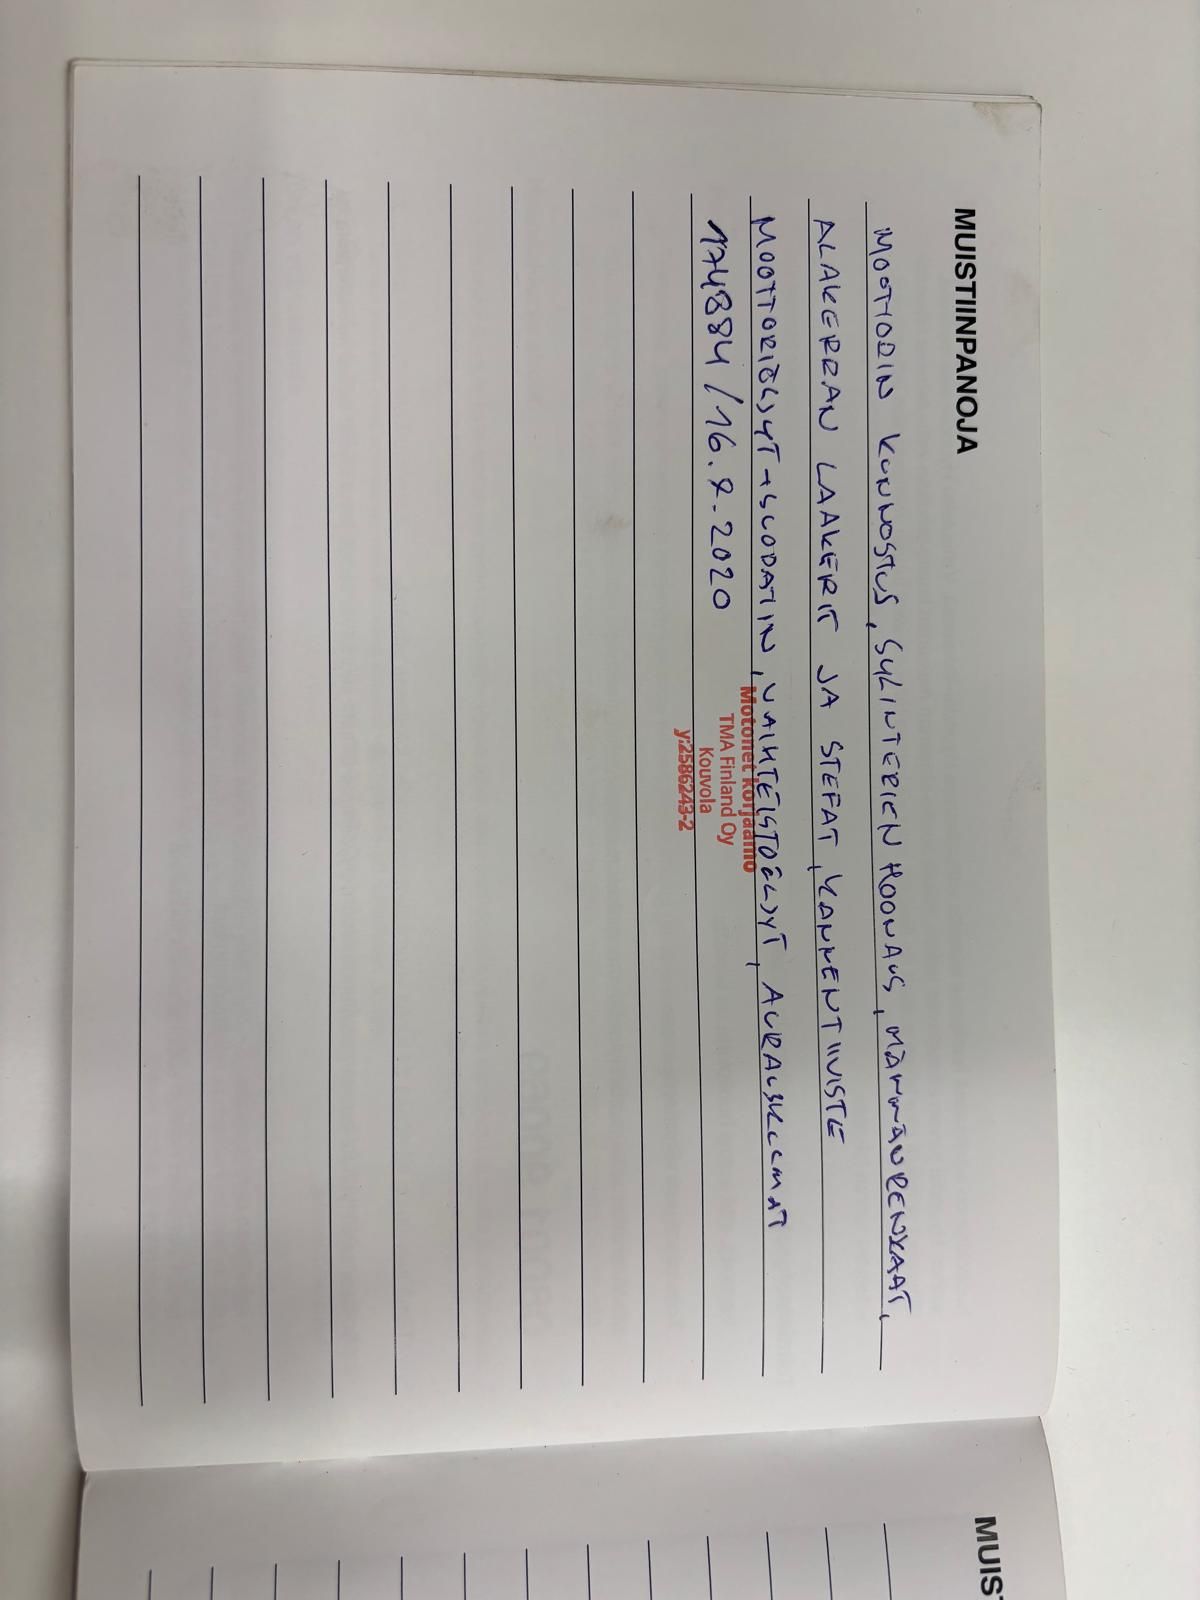 MUISTIINPANOJA
MOOTTORIN KUNNOSTUS, SYLINTERIEN HOONAUS, MÄNNÄNRENKAAT,
ALAKERRAN LAAKERIT JA STEFAT, KANNENTIIVISTE
MOOTTORIÖLJYT + SUODATIN, VAIHTEISTOÖLJYT, AURAUSKULMAT
174884 / 16.7.2020
Motonet korjaamo
TMA Finland Oy
Kouvola
y:2586243-2
MUIS